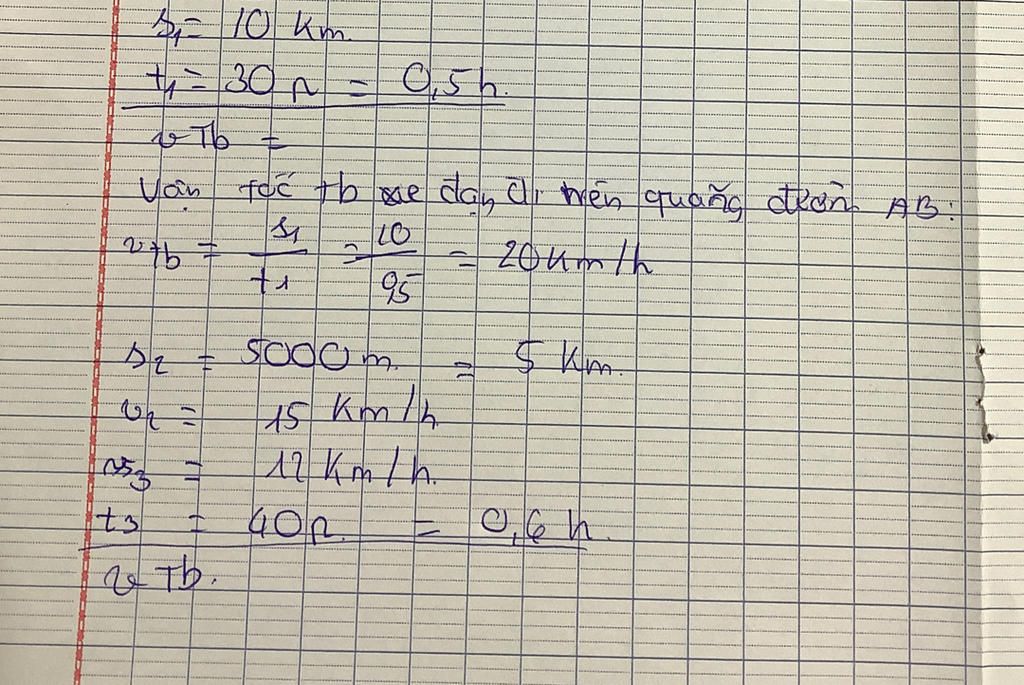 s₁ = 10 Km.
t₁ = 30 p = 0,5 h.
v Tb =
Vận tốc tb xe đạp đi trên quãng đường AB:
v tb = s₁/t₁ = 10/0,5 = 20 Km/h
s₂ = 5000 m = 5 Km.
v₂ = 15 Km/h
v₃ = 12 Km/h.
t₃ = 40 p = 0,6 h.
v Tb.